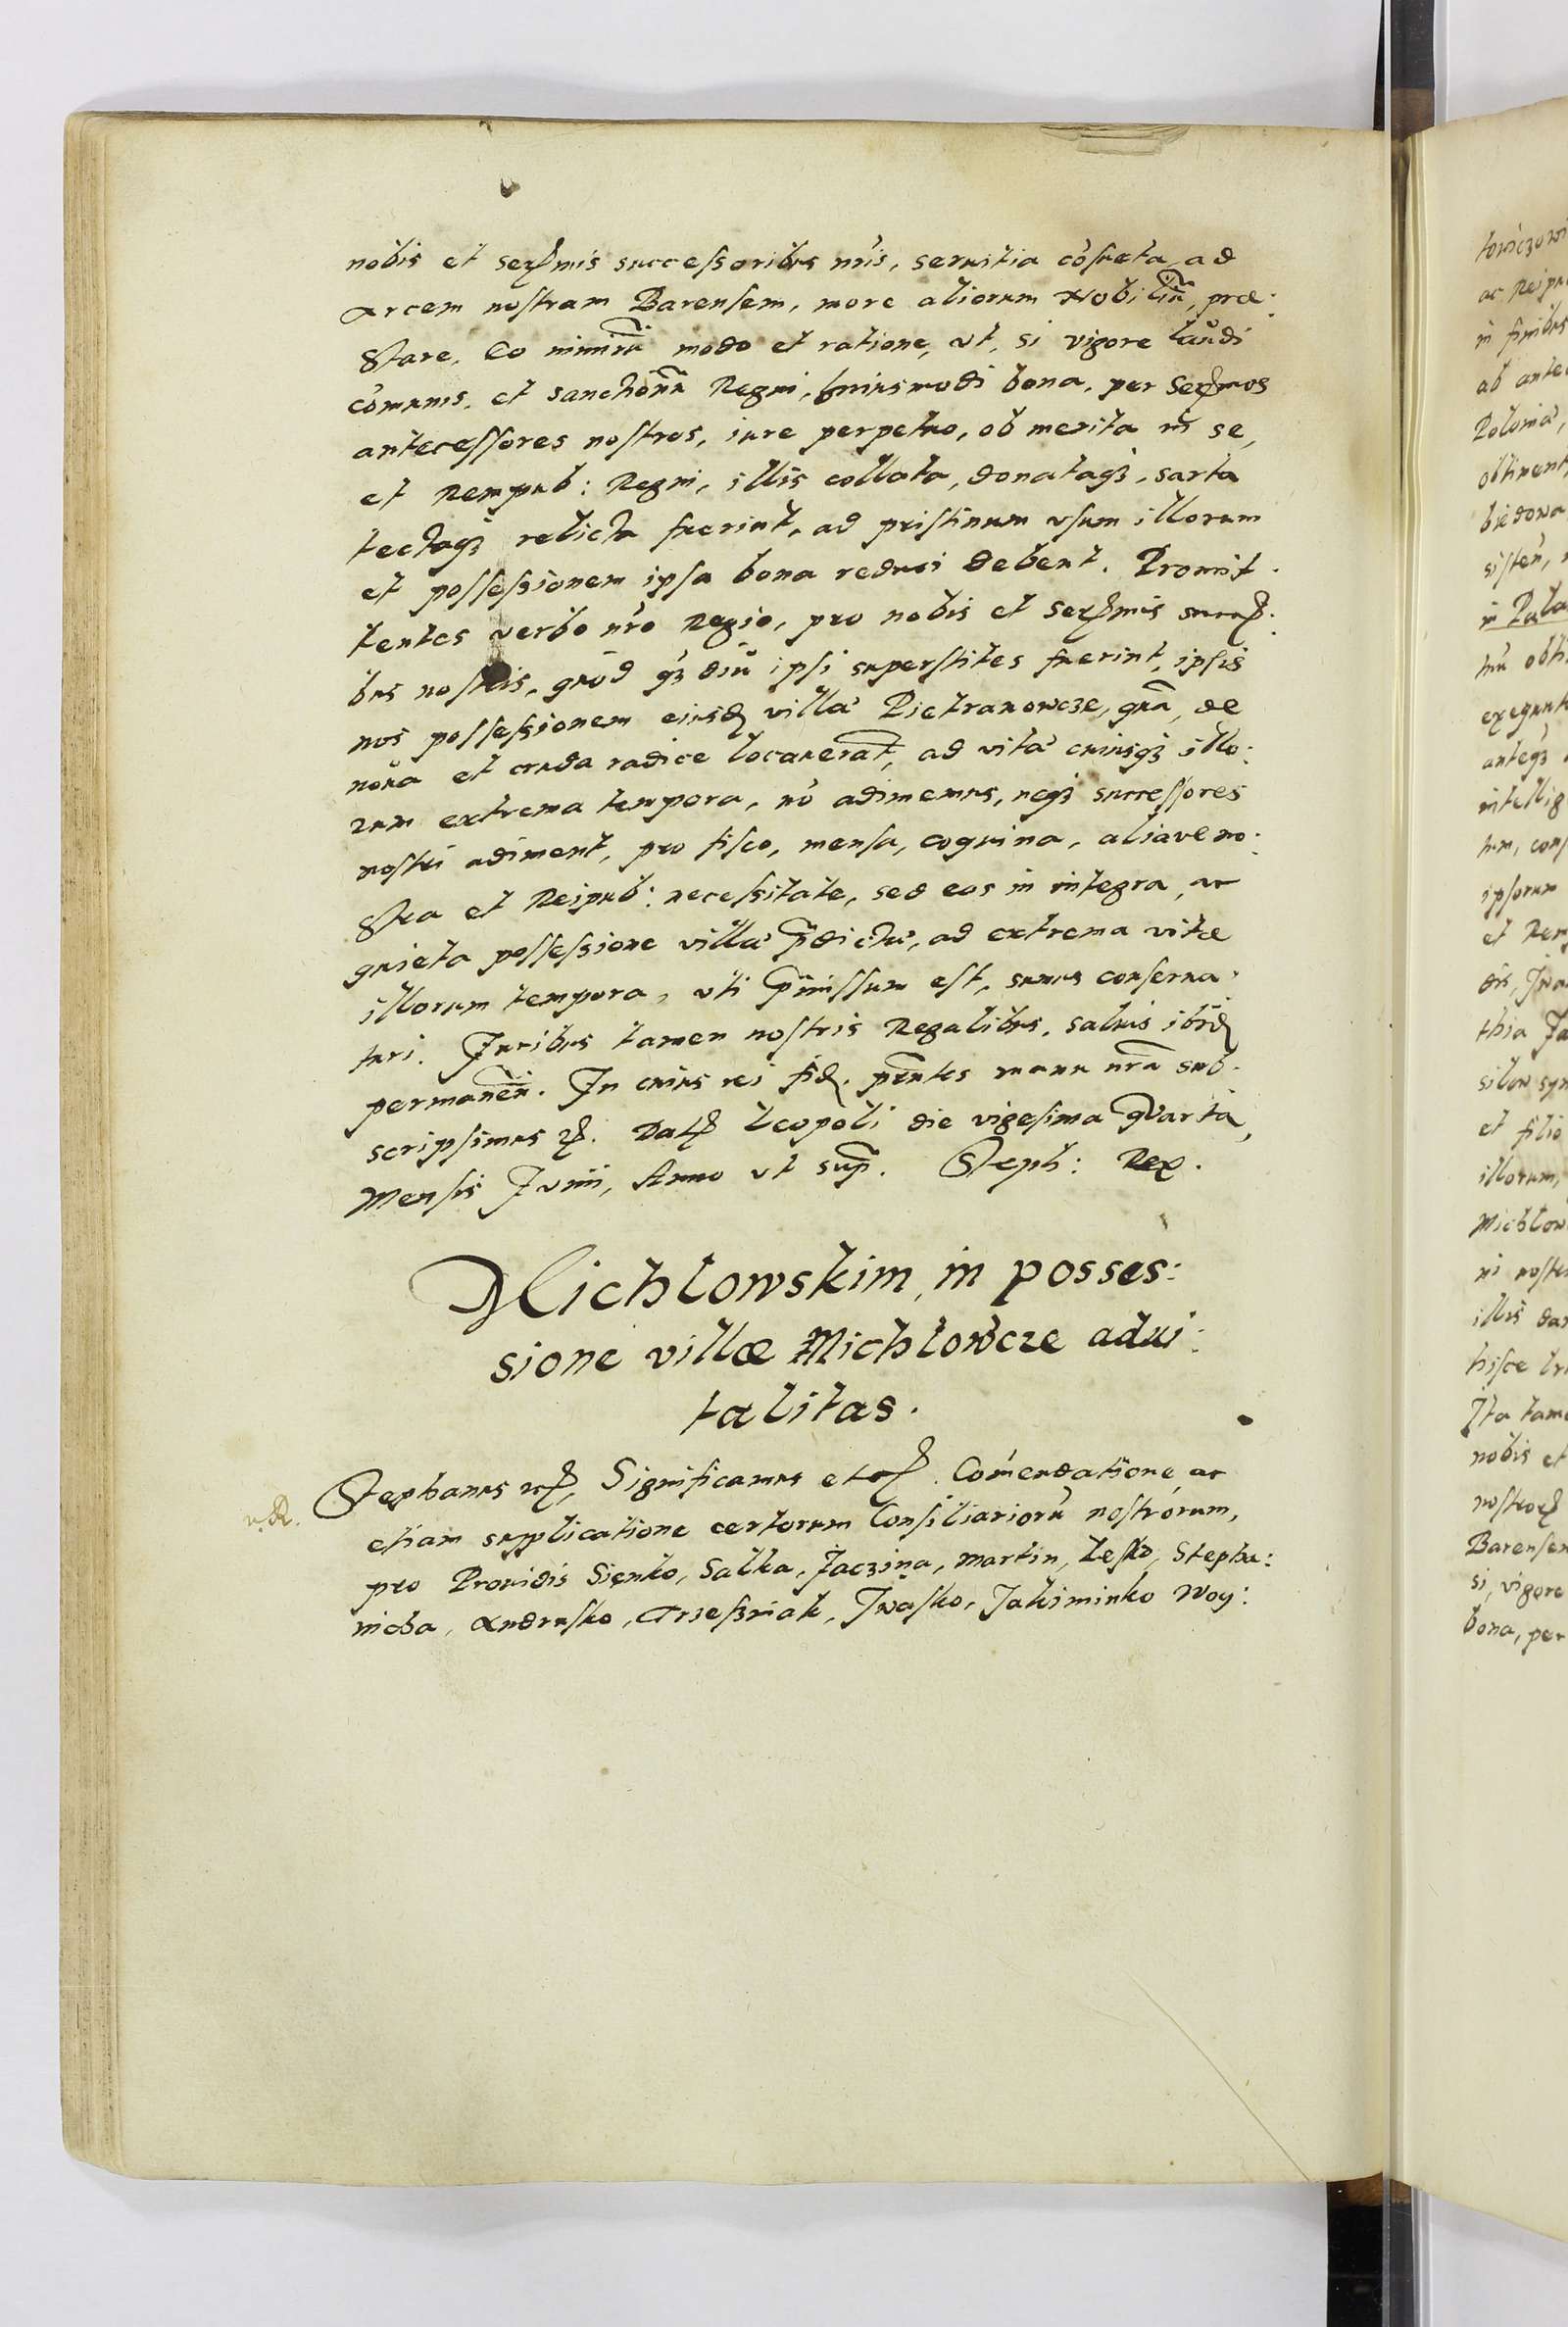 nobis et serṃmis successoribus nr̄is, seruitia cōsueta ad
Arcem nostram Barensem, more aliorum Nobiliū, præ:
stare. Eo nimirū modo et ratione, vt, si vigore laudi
cōmunis, et sanctionū Regni, huiusmodi bona, per Serṃos
antecessores nostros, iure perpetuo, ob merita in se,
et Rempub: Regni, illis collata, donataq3, sarta
tectaq3 relicta fuerint, ad pristinum vsum illorum
et possessionem ipsa bona reduci debent. Promit:
tentes verbo nr̄o Regio, pro nobis et serṃmis succ:
bus nostris, quod q3 diu ipsi superstites fuerint, ipsis
nos possessionem eiusd villa Pietranowcze, quā, de
noua et cruda radice locauerāt, ad vitā cuiusq3 illo:
rum extrema tempora, nō adimemus, neq3 successores
nostri adiment, pro fisco, mensa, coquina, aliaue no:
stra et Reipub: necessitate, sed eos in integra, ac
quieta possessione villa p̄dicta, ad extrema vitæ
illorum tempora, vti p̄missum est, sumus conserua:
turi. Juribus tamen nostris Regalibus, saluis ibid
permanen̄. In cuius rei fid. pn̄tes manu nr̄a sub:
scripsimus etc. Dat Leopoli die vigesima Quarta,
Mensis Junii, Anno vt sup̄. Steph: Rex.
Michlowskim, in posses:
sione villæ Michlowcze adui:
talitas.
v.R.
Stephanus etc, Significamus etc. Cōmendatione, ac
etiam supplicatione certorum Consiliariorū nostrorum,
pro Prouidis Sięnko, Salka, Jaczina, Martin, Lesko, Stepha:
nicha, Andrusko, Iwasko, Jakiminko Woy:
towiczowi
ac Reipu
in finibus
ab ante
Polonia,
obtinent
in Pala
intellig
ipsorum
et Rem
thia Ja
et filio
illorum,
Michlow
ni nostri
illis da
hisce
Ita tame
nobis et
Barensem
si, vigore
bona, per